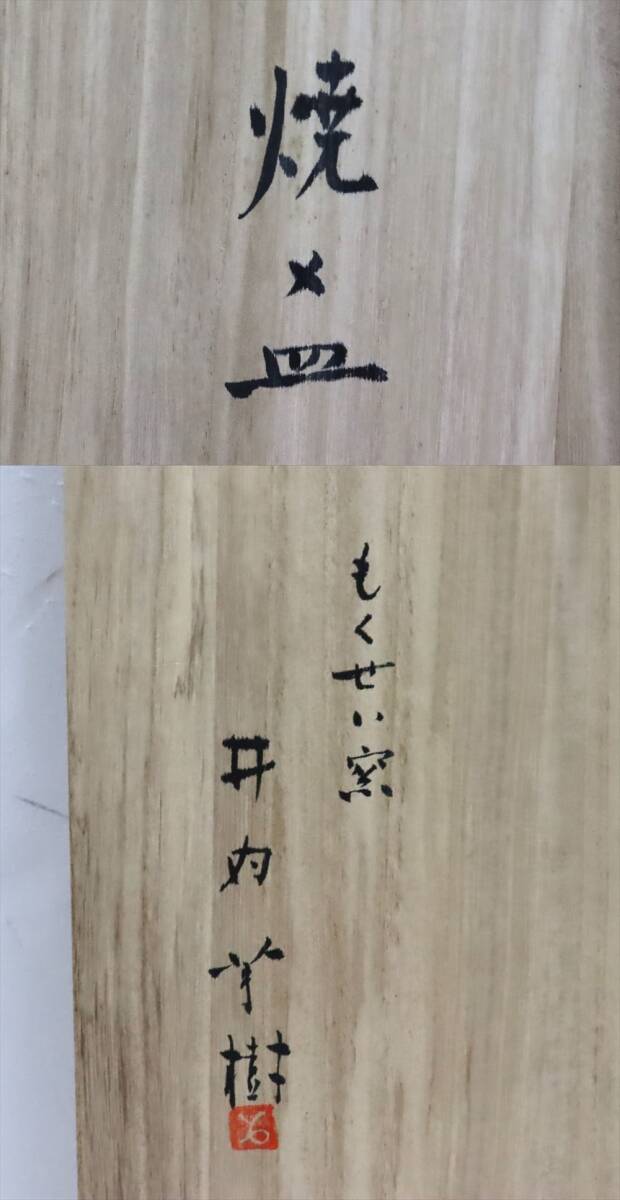 焼〆皿
もくせい窯
井内
樹